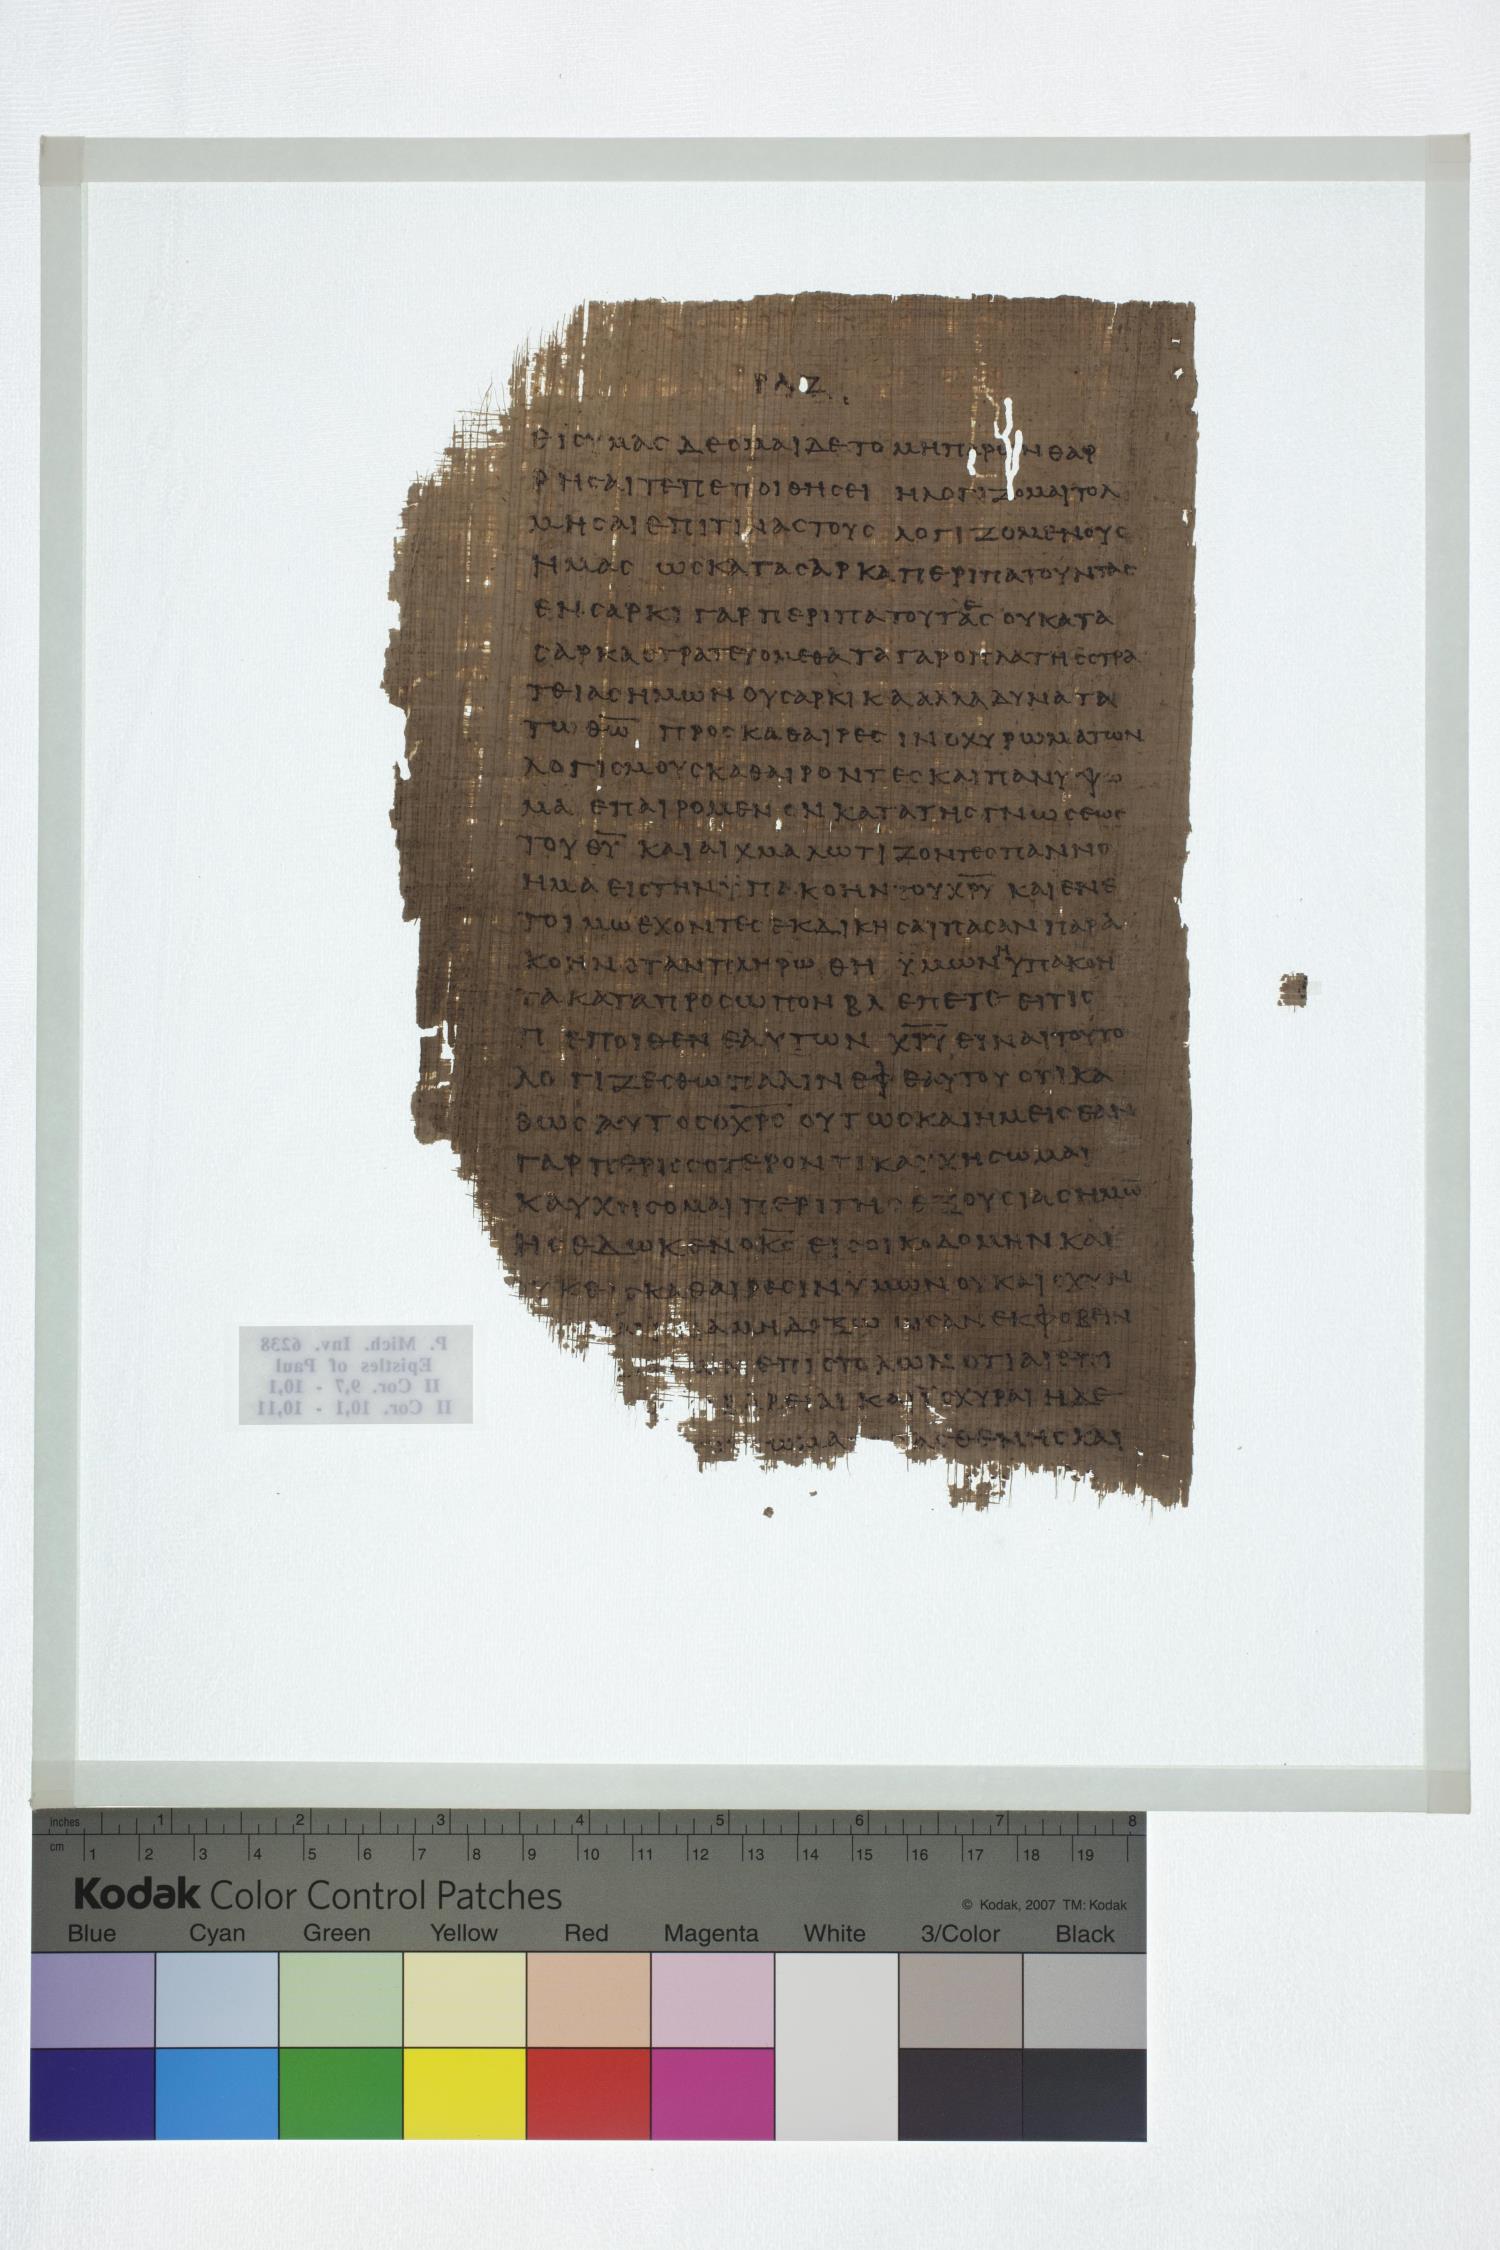 ΡΛΖ
ΕΙΣ ΥΜΑΣ ΔΕΟΜΑΙ ΔΕ ΤΟ ΜΗ ΠΑΡΩΝ ΘΑΡ
ΡΗΣΑΙ ΤΕ ΠΕΠΟΙΘΗΣΕΙ Η ΛΟΓΙΖΟΜΑΙ ΤΟΛ
ΜΗΣΑΙ ΕΠΙ ΤΙΝΑΣ ΤΟΥΣ ΛΟΓΙΖΟΜΕΝΟΥΣ
ΗΜΑΣ ΩΣ ΚΑΤΑ ΣΑΡΚΑ ΠΕΡΙΠΑΤΟΥΝΤΑΣ
ΕΝ ΣΑΡΚΙ ΓΑΡ ΠΕΡΙΠΑΤΟΥΤΑΕΣ ΟΥ ΚΑΤΑ
ΣΑΡΚΑ ΣΤΡΑΤΕΥΟΜΕΘΑ ΤΑ ΓΑΡ ΟΠΛΑ ΤΗΣ ΣΤΡΑ
ΤΕΙΑΣ ΗΜΩΝ ΟΥ ΣΑΡΚΙΚΑ ΑΛΛΑ ΔΥΝΑΤΑ
ΤΩ Θ̅Ω̅ ΠΡΟΣ ΚΑΘΑΙΡΕΣΙΝ ΟΧΥΡΩΜΑΤΩΝ
ΛΟΓΙΣΜΟΥΣ ΚΑΘΑΙΡΟΝΤΕΣ ΚΑΙ ΠΑΝ ΥΨΩ
ΜΑ ΕΠΑΙΡΟΜΕΝΟΝ ΚΑΤΑ ΤΗΣ ΓΝΩΣΕΩΣ
ΤΟΥ Θ̅Υ̅ ΚΑΙ ΑΙΧΜΑΛΩΤΙΖΟΝΤΕΣ ΠΑΝ ΝΟ
ΗΜΑ ΕΙΣ ΤΗΝ ΥΠΑΚΟΗΝ ΤΟΥ Χ̅Ρ̅Υ̅ ΚΑΙ ΕΝ Ε
ΤΟΙΜΩ ΕΧΟΝΤΕΣ ΕΚΔΙΚΗΣΑΙ ΠΑΣΑΝ ΠΑΡΑ
ΚΟΗΝ ΟΤΑΝ ΠΛΗΡΩΘΗ ΥΜΩΝ Η ΥΠΑΚΟΗ
ΤΑ ΚΑΤΑ ΠΡΟΣΩΠΟΝ ΒΛΕΠΕΤΕ ΕΙ ΤΙΣ
ΠΕΠΟΙΘΕΝ ΕΑΥΤΩΝ Χ̅Ρ̅Υ̅ ΕΙΝΑΙ ΤΟΥΤΟ
ΛΟΓΙΖΕΣΘΩ ΠΑΛΙΝ ΕΦ ΕΑΥΤΟΥ ΟΤΙ ΚΑ
ΘΩΣ ΑΥΤΟΣ Ο Χ̅Ρ̅Σ̅ ΟΥΤΩΣ ΚΑΙ ΗΜΕΙΣ ΕΑΝ
ΓΑΡ ΠΕΡΙΣΣΟΤΕΡΟΝ ΤΙ ΚΑΥΧΗΣΩΜΑΙ
ΚΑΥΧΗΣΟΜΑΙ ΠΕΡΙ ΤΗΣ ΕΞΟΥΣΙΑΣ ΗΜΩ̅
ΗΣ ΕΔΩΚΕΝ Ο Κ̅Σ̅ ΕΙΣ ΟΙΚΟΔΟΜΗΝ ΚΑΙ
ΟΥΚ ΕΙΣ ΚΑΘΑΙΡΕΣΙΝ ΥΜΩΝ ΟΥΚ ΑΙΣΧΥΝ
ΙΝΑ ΜΗ ΔΟΞΩ ΩΣ ΑΝ ΕΚΦΟΒΕΙΝ
ΤΩΝ ΕΠΙΣΤΟΛΩΝ ΟΤΙ ΑΙ ΕΠΙ
ΒΑΡΕΙΑΙ ΚΑΙ ΙΣΧΥΡΑΙ Η ΔΕ
ΣΩΜΑ ΑΣΘΕΝΗΣ ΚΑΙ
P. Mich. Inv. 6238
Epistles of Paul
II Cor. 9,7 - 10,1
II Cor. 10,1 - 10,11
inches 1 2 3 4 5 6 7 8
cm 1 2 3 4 5 6 7 8 9 10 11 12 13 14 15 16 17 18 19
Kodak Color Control Patches © Kodak, 2007 TM: Kodak
Blue Cyan Green Yellow Red Magenta White 3/Color Black